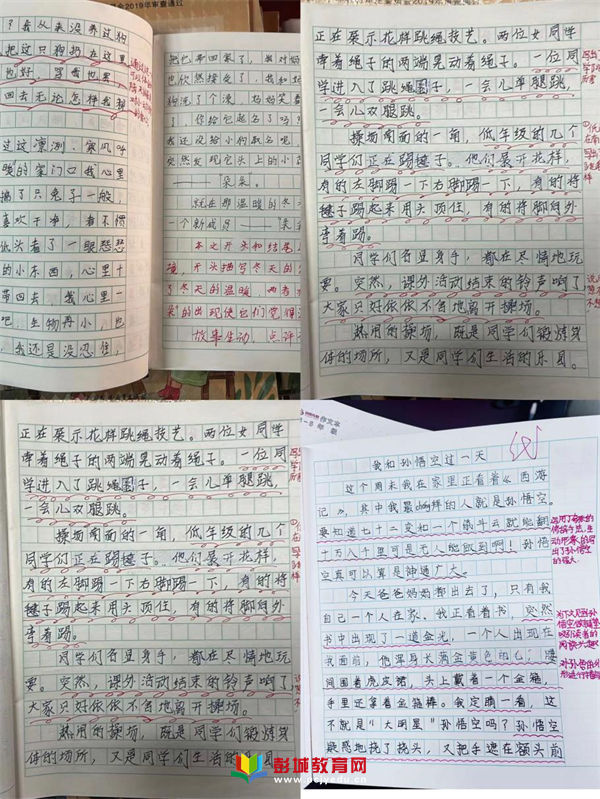 会2019年审查通过
？我从来没养过狗
把这只狗扔在这里
也好，骂我也罢，
回去无论怎样我都
过这凛冽、寒风呼
暖的家门口我心里
揣了只兔子一般，
喜欢干净，者不惯
低头看了一眼
的小东西，心里十
带回去，我心里一
吧，生物再小，也
，我还是没忍住，
把它带回家了，
也欣然接受了，我和妈
狗洗了个澡，妈妈笑着
你给它起名了吗？
我还没给小狗取名呢，
突然发现它头上的小
“朵朵。”
就在那温暖的冬
一个新成员——“朵
本文开头和结尾
境，开头描写冬天的
了冬天的温暖，两者
朵”的出现使它们变得
故事生动，点评
正在展示花样跳绳技艺。两位女同学
牵着绳子的两端晃动着绳子。一位同
学进入了跳绳圈子，一会儿单腿跳，
一会儿双腿跳。
操场南面的一角，低年级的几个
同学们正在踢毽子。他们展开花样，
有的左脚踢一下右脚踢一下，有的将
毽子踢起来用头顶住，有的将脚向外
李着踢。
同学们各显身手，都在尽情地玩
耍。突然，课外活动结束的铃声响了，
大家只好依依不舍地离开操场。
热闹的操场，既是同学们锻炼身
体的场所，又是同学们生活的乐园。
正在展示花样跳绳技艺。两位女同学
牵着绳子的两端晃动着绳子。一位同
学进入了跳绳圈子，一会儿单腿跳，
一会儿双腿跳。
操场南面的一角，低年级的几个
同学们正在踢毽子。他们展开花样，
有的左脚踢一下右脚踢一下，有的将
毽子踢起来用头顶住，有的将脚向外
李着踢。
同学们各显身手，都在尽情地玩
耍。突然，课外活动结束的铃声响了，
大家只好依依不舍地离开操场。
热闹的操场，既是同学们锻炼身
体的场所，又是同学们生活的乐园
作文本
我和孙悟空过一天
这个周末我在家里正看着《西游
记》，其中我最崇拜的人就是孙悟空。
要知道七十二变和一个筋斗云就能翻
十万八千里可是无人能敌到啊！孙悟
空真可以算是神通广大。
今天爸爸妈妈都出去了，只有我
自己一个人在家。我正看着书，突然
书中出现了一道金光，一个人出现在
我面前，他浑身长满金黄色的毛，腰
间围着虎皮裙，头上戴着一个金箍，
手里还拿着金箍棒。我定睛一看，这
不就是“大明星”孙悟空吗？孙悟空
疑惑地挠了挠头，又把手遮在额头前
彭城教育网
www.pcjyedu.cn